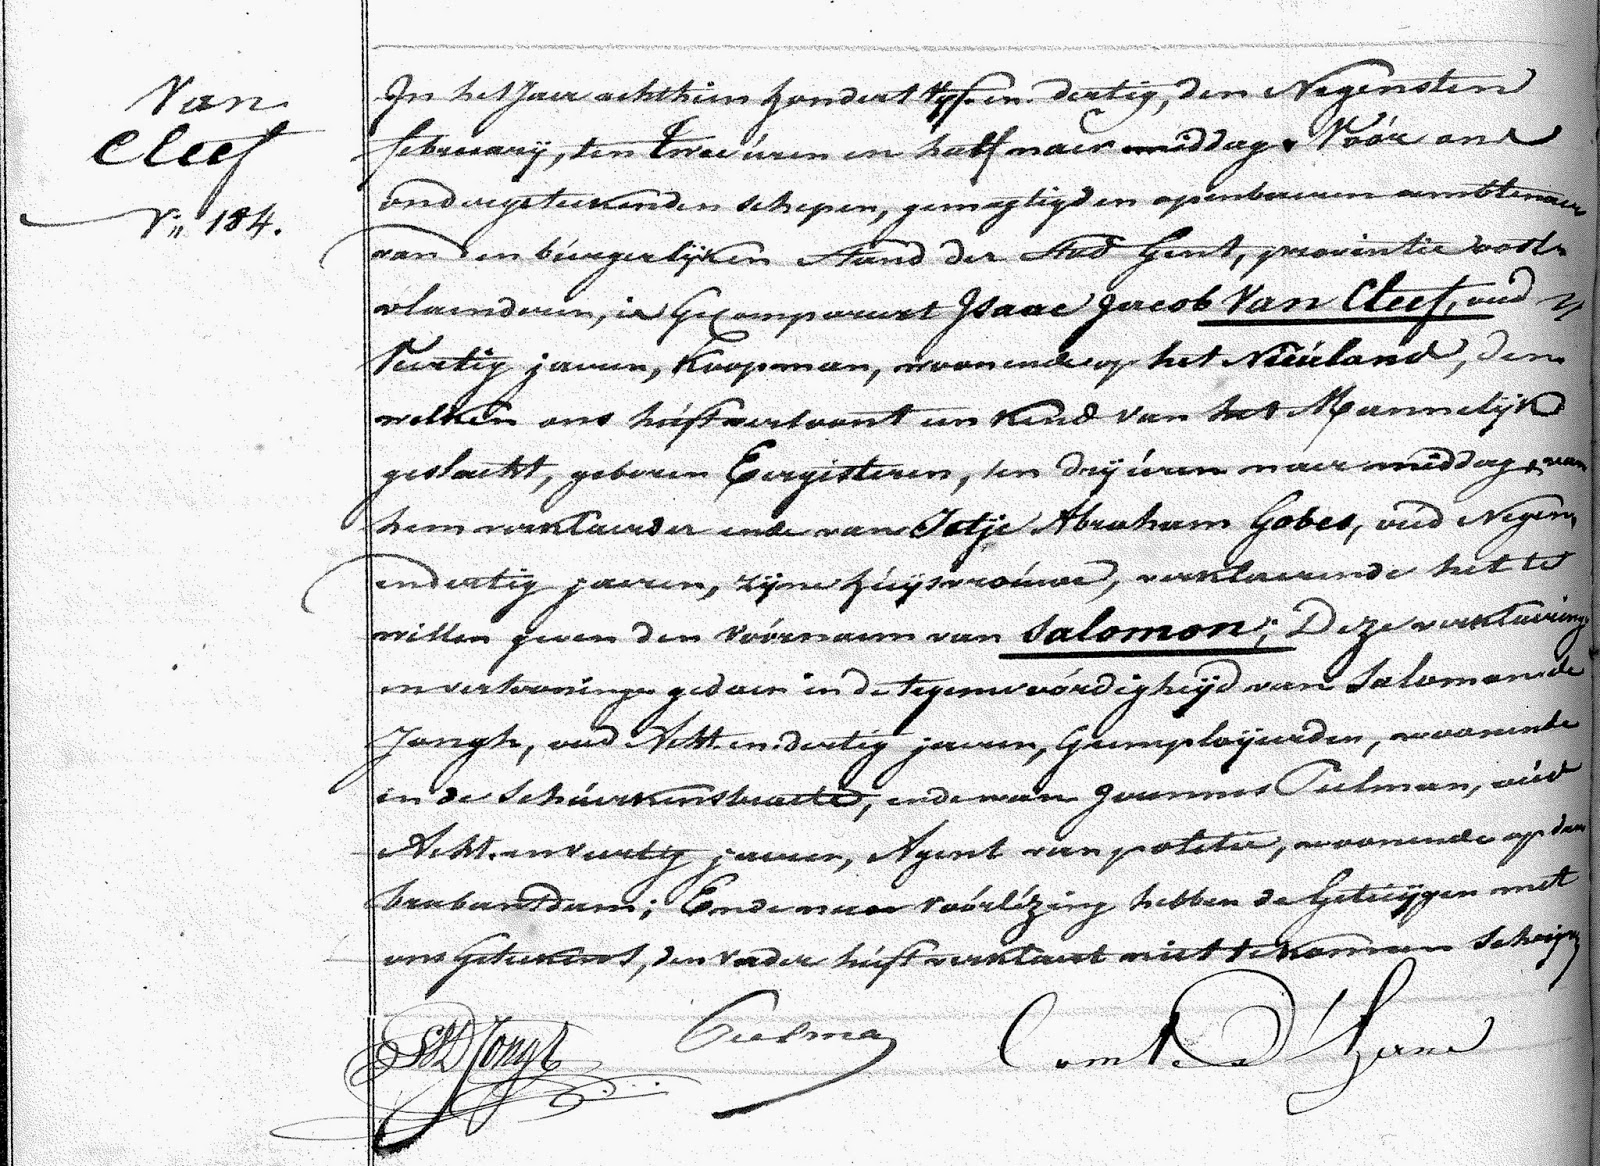 Van
Cleef
N" 184.
In het Jaer achthien hondert vyf-en-dertig, den Negensten
february, ten twee úren en half naer middag. Vóór ons
ondergeteekenden schepen, gemagtigden openbaeren ambtenaer
van den búrgerlijken stand der stad Gent, provintie oost-
vlaenderen, is Gecompareert Isaac Jacob Van Cleef, oud
Veertig jaeren, Koopman, woonende op het Nieúland, den
welken ons heéft vertoont een kind van het Mannelijk
geslacht, geboren Eergisteren, ten dry úren naer middag, van
hem verklaerder ende van Jetje Abraham Gobes, oud Negen-
endertig jaeren, zyne húysvroúwe, verklaerende het te
willen geven den vóórnaem van Salomon; Deze verklaering
en vertooning gedaen in de tegenwoórdigheÿd van Salomon de
Jongh, oud Acht-en-dertig jaeren, Geemployeerden, woonende
in de Schúerkenstraete, ende van Joannes Peelman, oúd
Acht-en veertig jaeren, Agent van politie, woonende op den
brabantdam; Ende naer vóórlézing hebben de Getuÿgen met
ons Geteekent, den vader heéft verklaert niet te konnen schrijven
SD Jongh Peelman Comte D'Hane